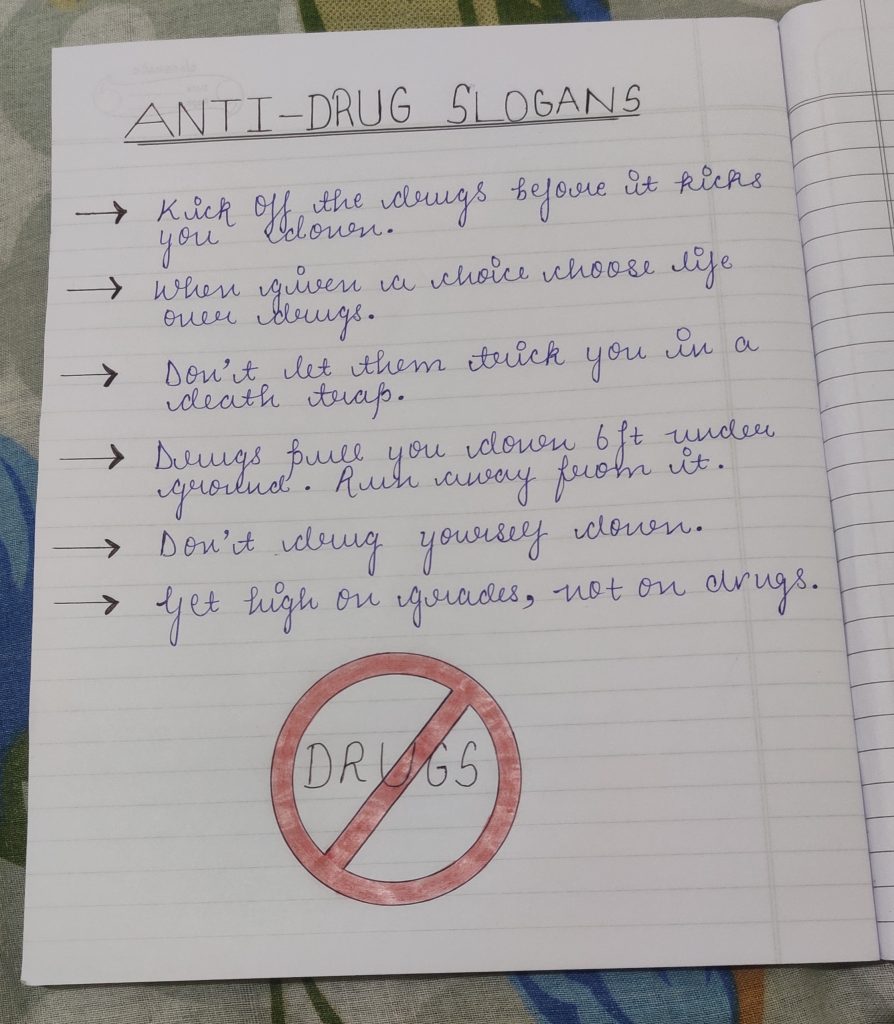 ANTI-DRUG SLOGANS
→ Kick off the drugs before it kicks
you down.
→ When given a choice choose life
over drugs.
→ Don't let them trick you in a
death trap.
→ Drugs pull you down 6 ft under
ground. Run away from it.
→ Don't drug yourself down.
→ Get high on grades, not on drugs.
DRUGS